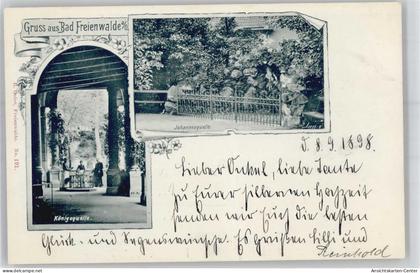 Gruss aus Bad Freienwalde a/O.
Johannesquelle.
Königsquelle.
No. 191.
d. 8.9.1898.
Lieber Onkel, liebe Tante
zu Eurer silbernen Hochzeit
senden wir Euch die besten
Glück- und Segenswünsche. Es grüßen Lilli und
Reinhold
Ansichtskarten-Center.de